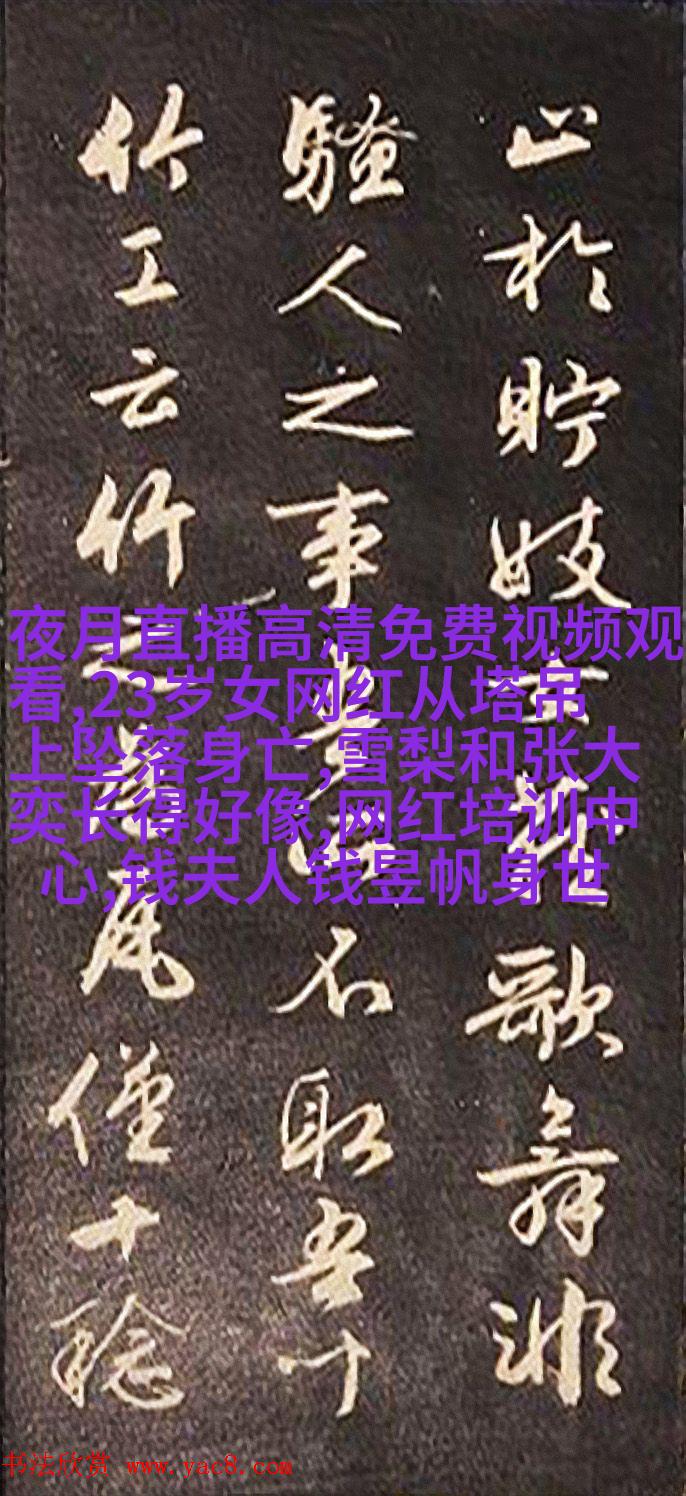 止於貯妓女藏歌舞非
騷人之事吾所不取吾聞
竹工云竹之為瓦僅十稔
夜月直播高清免费视频观
看,23岁女网红从塔吊
上坠落身亡,雪梨和张大
奕长得好像,网红培训中
心,钱夫人钱昱帆身世
书法欣赏 www.yac8.com